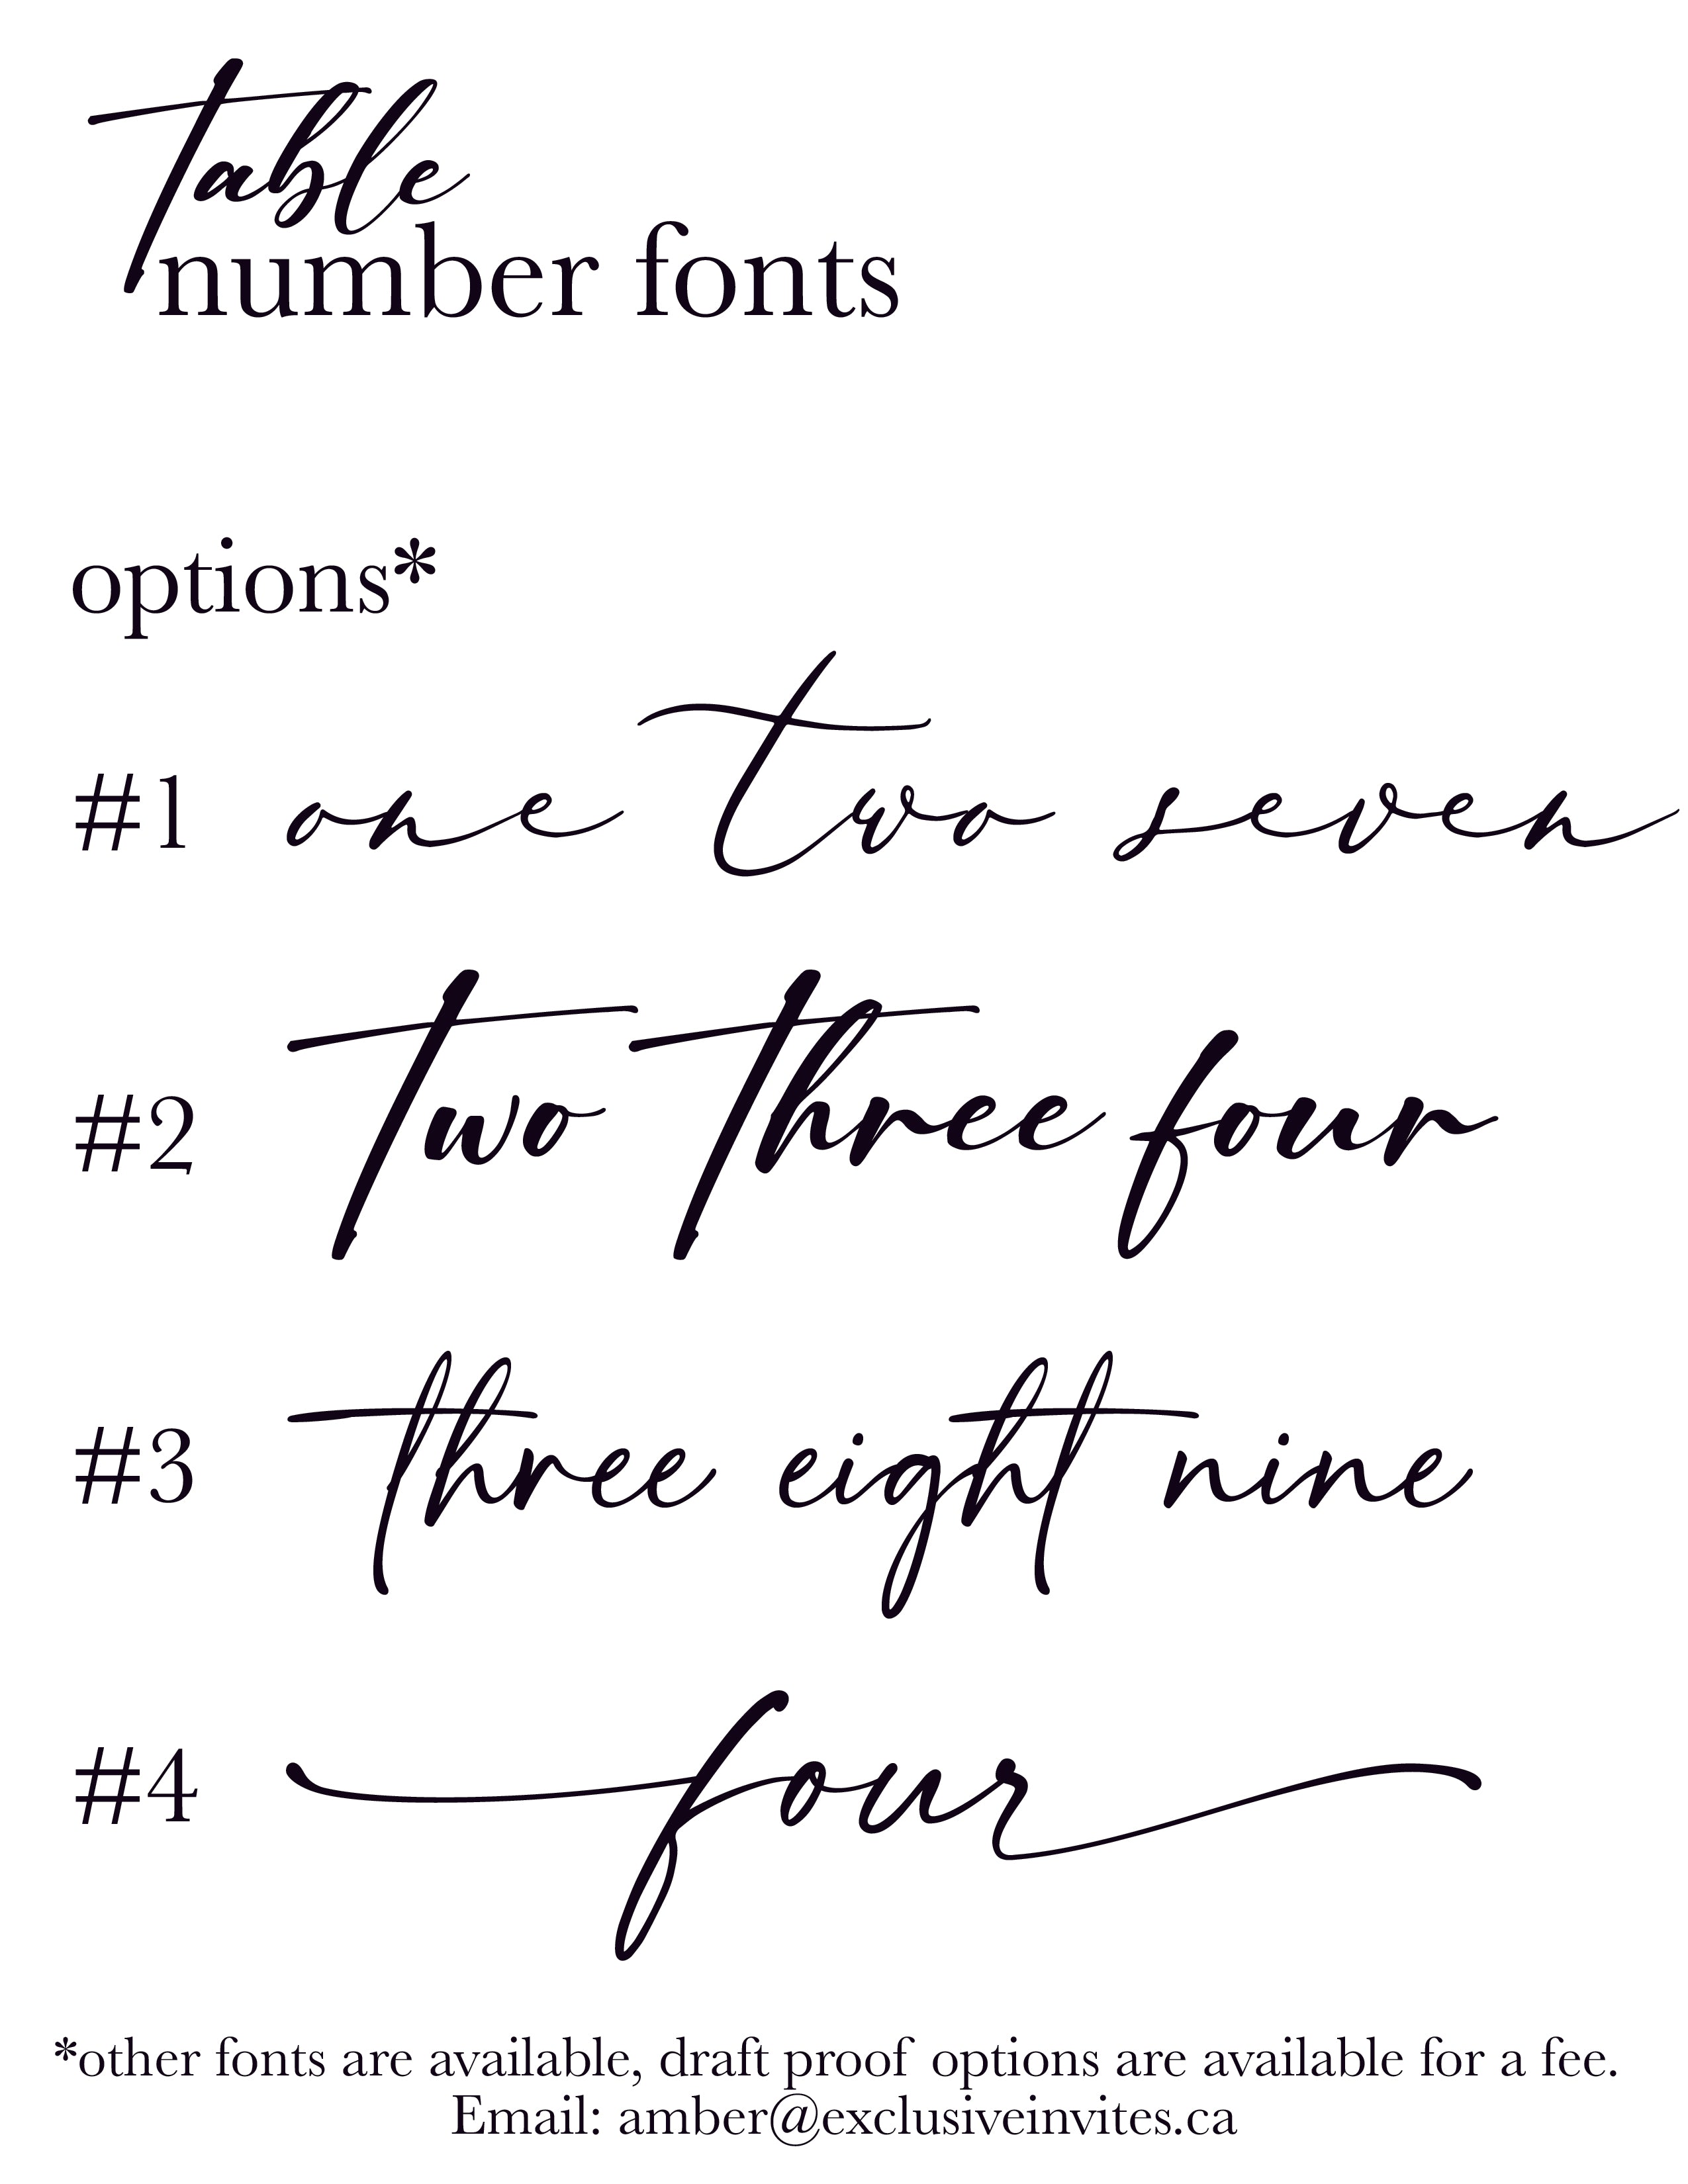 Table
number fonts
options*
#1 one two seven
#2 two three four
#3 three eight nine
#4 four
*other fonts are available, draft proof options are available for a fee.
Email: amber@exclusiveinvites.ca